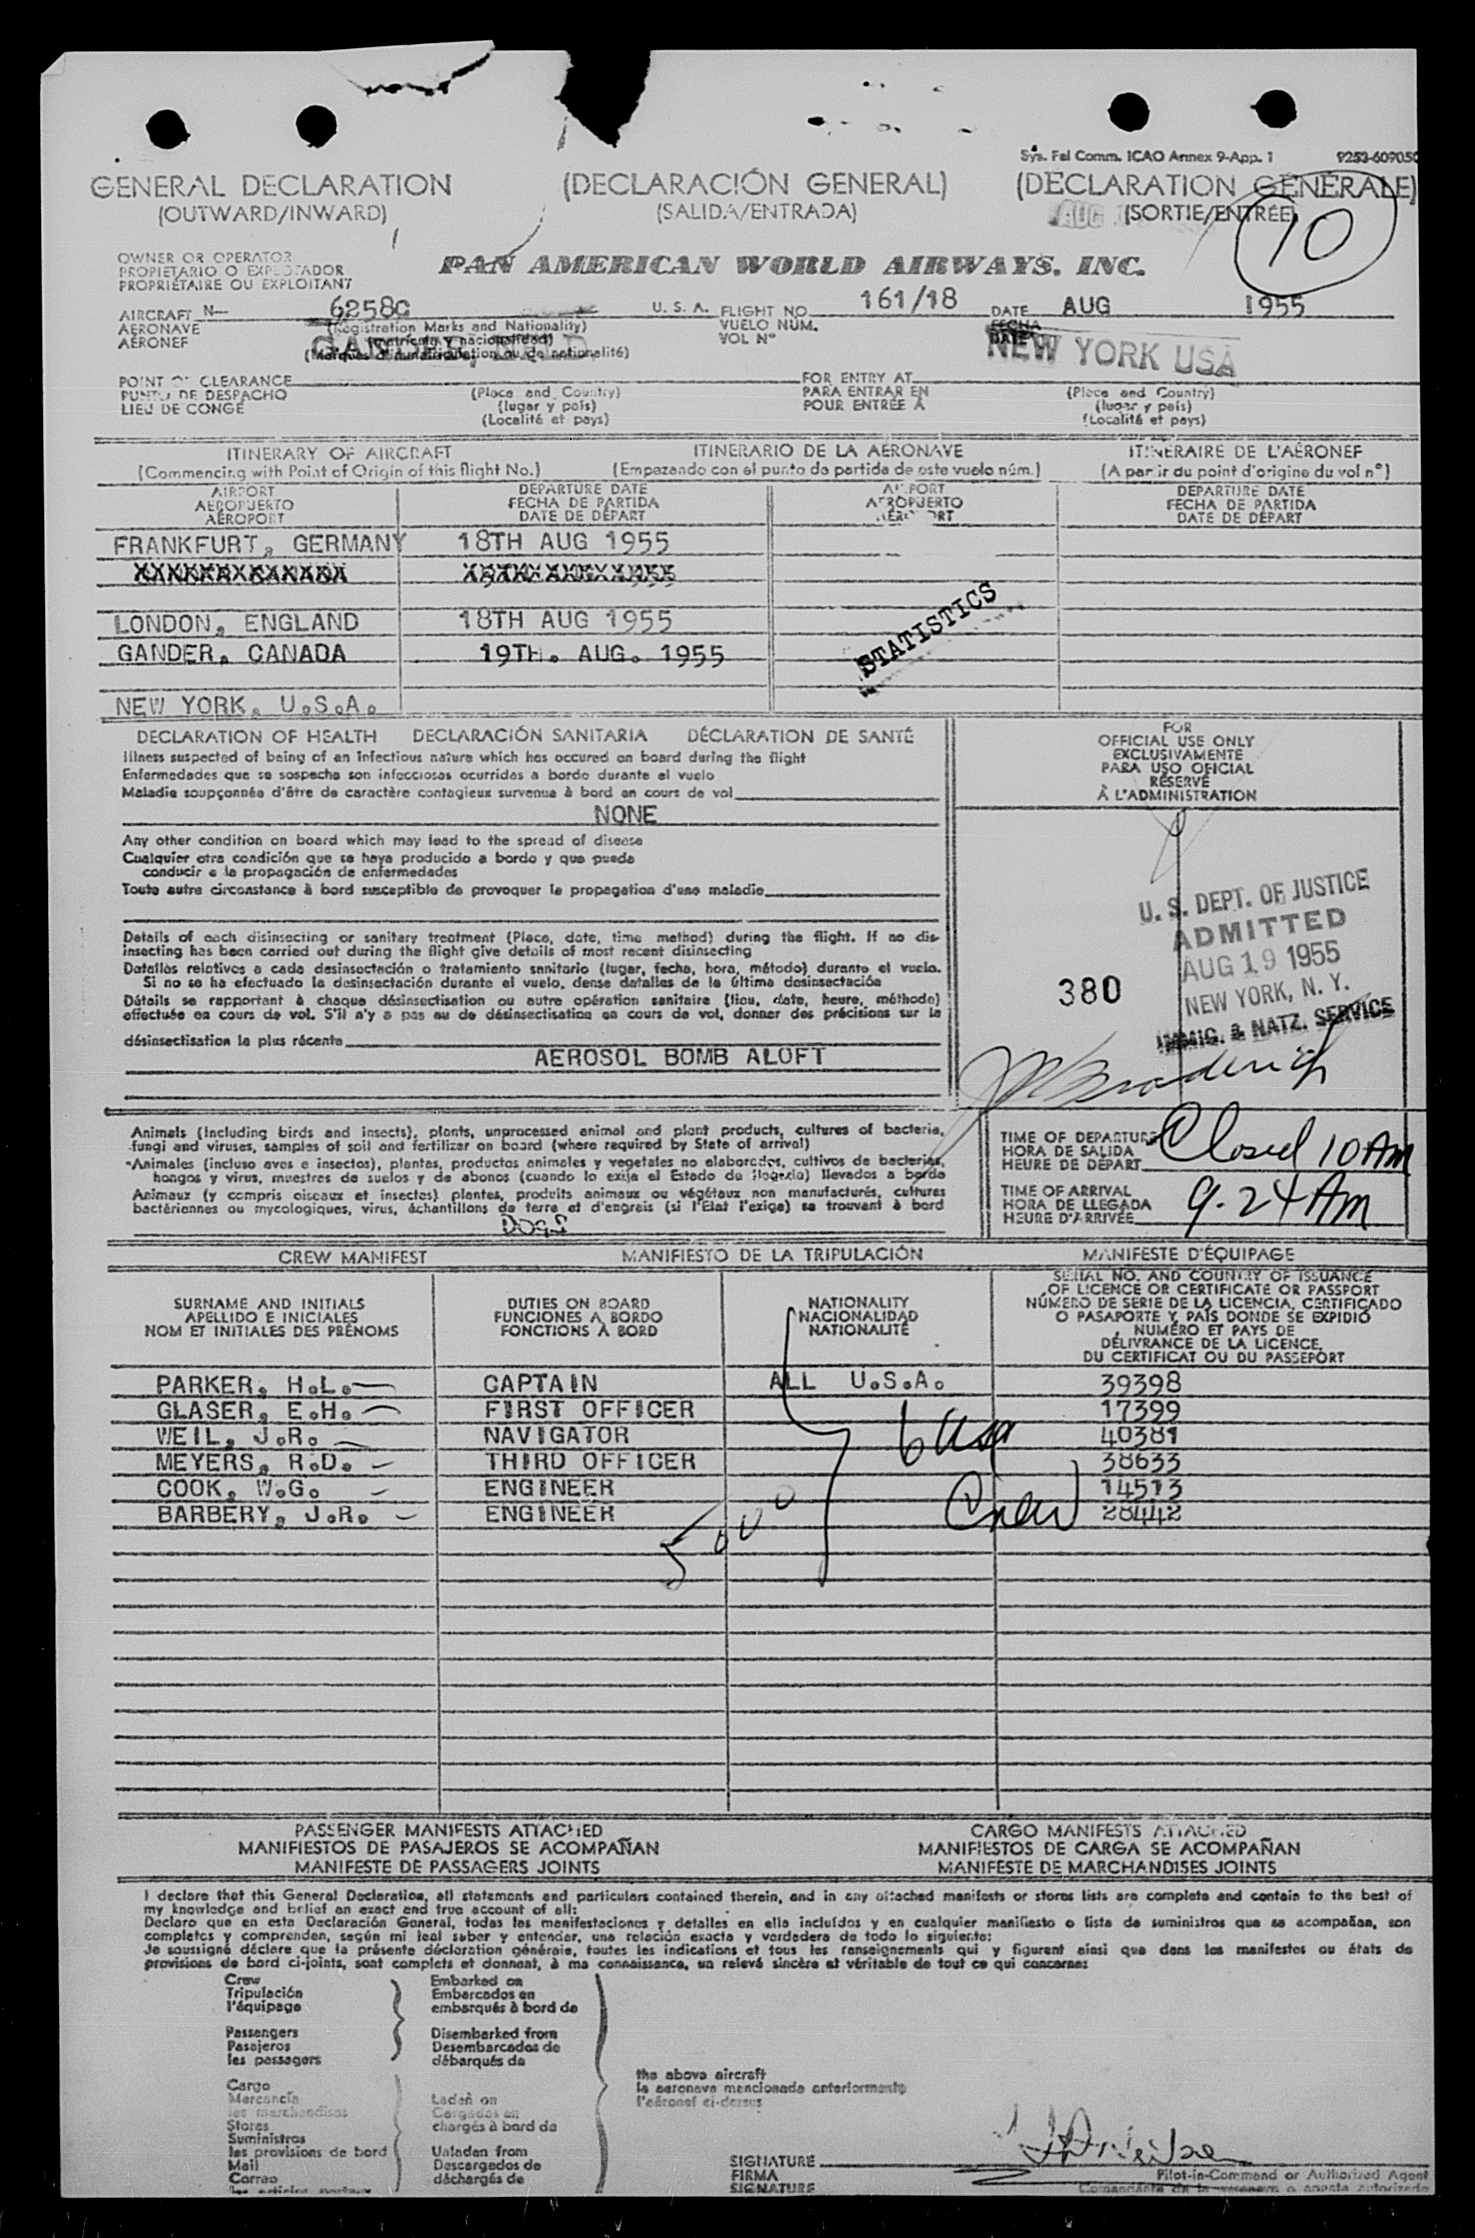 Sys. Fal Comm. ICAO Annex 9-App. 1 9253-609050
GENERAL DECLARATION (DECLARACIÓN GENERAL) (DECLARATION GENERALE)
(OUTWARD/INWARD) (SALIDA/ENTRADA) AUG (SORTIE/ENTRÉE)
10
OWNER OR OPERATOR
PROPIETARIO O EXPLOTADOR
PROPRIÉTAIRE OU EXPLOITANT
PAN AMERICAN WORLD AIRWAYS, INC.
AIRCRAFT N— 6258C U. S. A. FLIGHT NO. 161/18 DATE AUG 1955
AERONAVE (Registration Marks and Nationality) VUELO NÚM. FECHA
AÉRONEF VOL Nº DATE
NEW YORK USA
POINT OF CLEARANCE FOR ENTRY AT
PUNTO DE DESPACHO (Place and Country) PARA ENTRAR EN (Place and Country)
LIEU DE CONGÉ (lugar y país) POUR ENTRÉE À (lugar y país)
(Localité et pays) (Localité et pays)
ITINERARY OF AIRCRAFT ITINERARIO DE LA AERONAVE ITINERAIRE DE L'AÉRONEF
(Commencing with Point of Origin of this flight No.) (Empezando con el punto de partida de este vuelo núm.) (A partir du point d'origine du vol nº)
AIRPORT DEPARTURE DATE AIRPORT DEPARTURE DATE
AEROPUERTO FECHA DE PARTIDA AEROPUERTO FECHA DE PARTIDA
AÉROPORT DATE DE DÉPART AÉROPORT DATE DE DÉPART
FRANKFURT, GERMANY 18TH AUG 1955
LONDON, ENGLAND 18TH AUG 1955
STATISTICS
GANDER, CANADA 19TH. AUG. 1955
NEW YORK, U.S.A.
DECLARATION OF HEALTH DECLARACIÓN SANITARIA DÉCLARATION DE SANTÉ
Illness suspected of being of an infectious nature which has occured on board during the flight
Enfermedades que se sospecha son infecciosas ocurridas a bordo durante el vuelo
Maladie soupçonnée d'être de caractère contagieux survenue à bord en cours de vol
NONE
Any other condition on board which may lead to the spread of disease
Cualquier otra condición que se haya producido a bordo y que pueda
conducir a la propagación de enfermedades
Toute autre circonstance à bord susceptible de provoquer la propagation d'une maladie
Details of each disinsecting or sanitary treatment (Place, date, time method) during the flight. If no dis-
insecting has been carried out during the flight give details of most recent disinsecting
Detalles relativos a cada desinsectación o tratamiento sanitario (lugar, fecha, hora, método) durante el vuelo.
Si no se ha efectuado la desinsectación durante el vuelo, dense detalles de la última desinsectación
Détails se rapportant à chaque désinsectisation ou autre opération sanitaire (lieu, date, heure, méthode)
effectuée en cours de vol. S'il n'y a pas eu de désinsectisation en cours de vol, donner des précisions sur la
désinsectisation la plus récente
AEROSOL BOMB ALOFT
FOR
OFFICIAL USE ONLY
EXCLUSIVAMENTE
PARA USO OFICIAL
RÉSERVÉ
À L'ADMINISTRATION
U. S. DEPT. OF JUSTICE
ADMITTED
AUG 19 1955
NEW YORK, N. Y.
IMMIG. & NATZ. SERVICE
380
Animals (Including birds and insects), plants, unprocessed animal and plant products, cultures of bacteria,
fungi and viruses, samples of soil and fertilizer on board (where required by State of arrival)
Animales (incluso aves e insectos), plantas, productos animales y vegetales no elaborados, cultivos de bacterias,
hongos y virus, muestras de suelos y de abonos (cuando lo exija el Estado de llegada) llevados a bordo
Animaux (y compris oiseaux et insectes) plantes, produits animaux ou végétaux non manufacturés, cultures
bactériennes ou mycologiques, virus, échantillons de terre et d'engrais (si l'Etat l'exige) se trouvant à bord
DOGS
TIME OF DEPARTURE Closed 10 AM
HORA DE SALIDA
HEURE DE DÉPART
TIME OF ARRIVAL 9-24 AM
HORA DE LLEGADA
HEURE D'ARRIVÉE
CREW MANIFEST MANIFIESTO DE LA TRIPULACIÓN MANIFESTE D'ÉQUIPAGE
SURNAME AND INITIALS
APELLIDO E INICIALES
NOM ET INITIALES DES PRÉNOMS
DUTIES ON BOARD
FUNCIONES A BORDO
FONCTIONS À BORD
NATIONALITY
NACIONALIDAD
NATIONALITÉ
SERIAL NO. AND COUNTRY OF ISSUANCE
OF LICENCE OR CERTIFICATE OR PASSPORT
NÚMERO DE SERIE DE LA LICENCIA, CERTIFICADO
O PASAPORTE Y PAÍS DONDE SE EXPIDIÓ
NUMÉRO ET PAYS DE
DÉLIVRANCE DE LA LICENCE,
DU CERTIFICAT OU DU PASSEPORT
PARKER, H.L. CAPTAIN ALL U.S.A. 39398
GLASER, E.H. FIRST OFFICER 17399
WEIL, J.R. NAVIGATOR 40381
MEYERS, R.D. THIRD OFFICER 38633
COOK, W.G. ENGINEER 14513
BARBERY, J.R. ENGINEER 28442
6 USA
Crew
PASSENGER MANIFESTS ATTACHED CARGO MANIFESTS ATTACHED
MANIFIESTOS DE PASAJEROS SE ACOMPAÑAN MANIFIESTOS DE CARGA SE ACOMPAÑAN
MANIFESTE DE PASSAGERS JOINTS MANIFESTE DE MARCHANDISES JOINTS
I declare that this General Declaration, all statements and particulars contained therein, and in any attached manifests or stores lists are complete and contain to the best of
my knowledge and belief an exact and true account of all:
Declaro que en esta Declaración General, todas las manifestaciones y detalles en ella incluídos y en cualquier manifiesto o lista de suministros que se acompañan, son
completos y comprenden, según mi leal saber y entender, una relación exacta y verdadera de todo lo siguiente:
Je soussigné déclare que la présente déclaration générale, toutes les indications et tous les renseignements qui y figurent ainsi que dans les manifestes ou états de
provisions de bord ci-joints, sont complets et donnent, à ma connaissance, un relevé sincère et véritable de tout ce qui concerne:
Crew Embarked on
Tripulación Embarcados en
l'équipage embarqués à bord de
Passengers Disembarked from
Pasajeros Desembarcados de
les passagers débarqués de
the above aircraft
la aeronave mencionada anteriormente
l'aéronef ci-dessus
Cargo
Mercancía Laden on
les marchandises Cargados en
Stores chargés à bord de
Suministros
les provisions de bord Unladen from
Mail Descargados de
Correo déchargés de
SIGNATURE
FIRMA Pilot-in-Command or Authorized Agent
SIGNATURE Comandante de la aeronave o agente autorizado